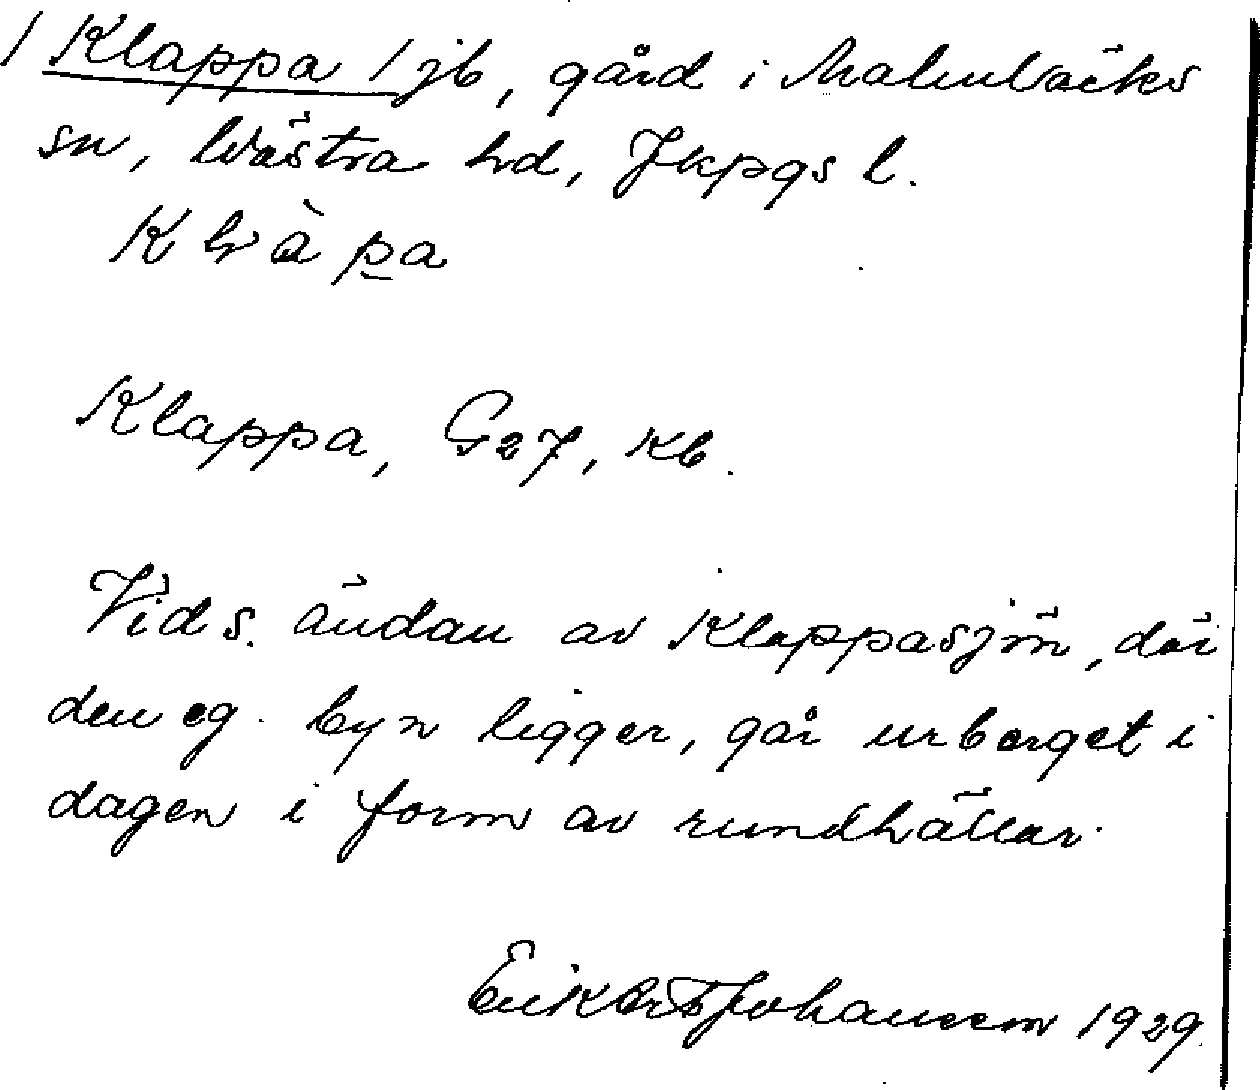 / Klappa / jb, gård i Malmbäcks
sn, Västra hd, Jkpgs l.
Klàpa
Klappa, G27, Kb.
Vid s. ändan av Klappasjön, där
den eg. byn ligger, går urberget i
dagen i form av rundhällar.
Erik Johansson 1929.